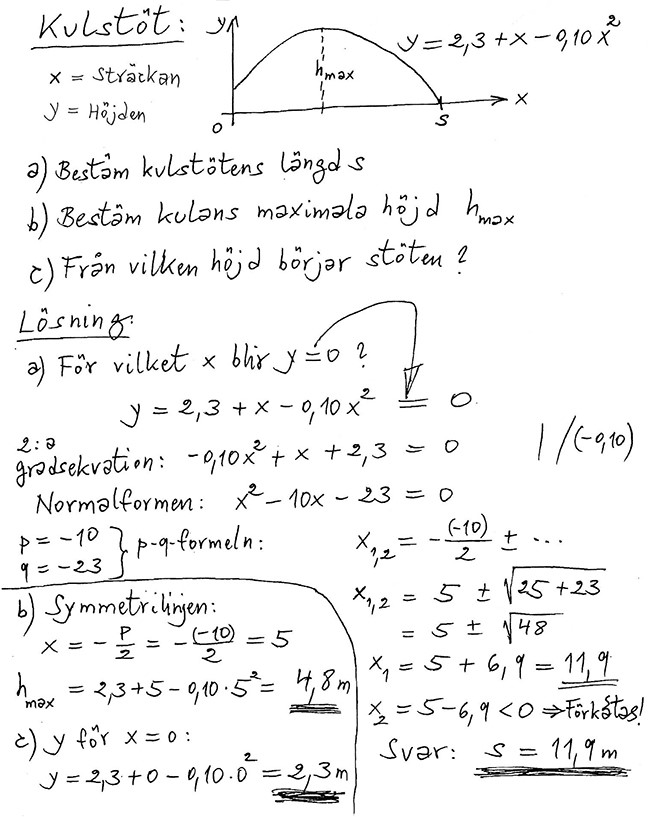 Kulstöt:
y
y = 2,3 + x - 0,10x²
x = Sträckan
h max
y = Höjden
x
0
s
a) Bestäm kulstötens längd s
b) Bestäm kulans maximala höjd h max
c) Från vilken höjd börjar stöten?
Lösning:
a) För vilket x blir y = 0 ?
y = 2,3 + x - 0,10x² = 0
2:a
gradsekvation: -0,10x² + x + 2,3 = 0 | /(-0,10)
Normalformen: x² - 10x - 23 = 0
p = -10
q = -23 } p-q-formeln:
x₁,₂ = - (-10)/2 ± ...
x₁,₂ = 5 ± √25+23
= 5 ± √48
x₁ = 5 + 6,9 = 11,9
x₂ = 5 - 6,9 < 0 ⇒ Förkastas!
Svar: s = 11,9 m
b) Symmetrilinjen:
x = - p/2 = - (-10)/2 = 5
h max = 2,3 + 5 - 0,10·5² = 4,8 m
c) y för x = 0:
y = 2,3 + 0 - 0,10·0² = 2,3 m